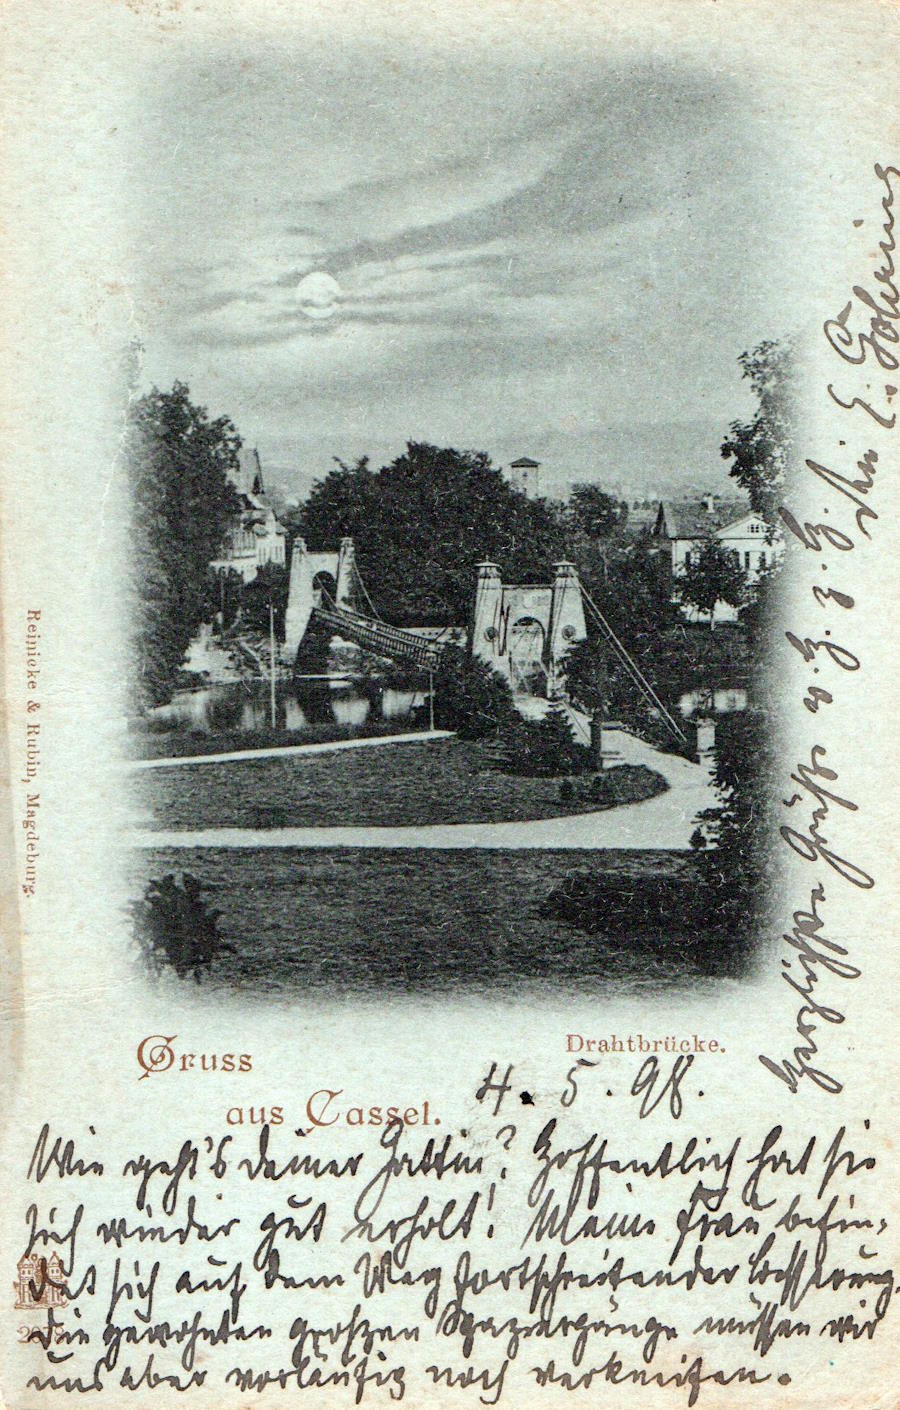 Gruss
aus Cassel.
Drahtbrücke.
4. 5. 98.
Wie geht's deiner Gattin? Hoffentlich hat sie
sich wieder gut erholt! Meine Frau befin-
det sich auf dem Weg fortschreitender Besserung.
Die gewohnten großen Spaziergänge müssen wir
uns aber vorläufig noch verkneifen.
Herzlichste Grüße v. H. z. H. Dein E. Göhring
Reinicke & Rubin, Magdeburg.